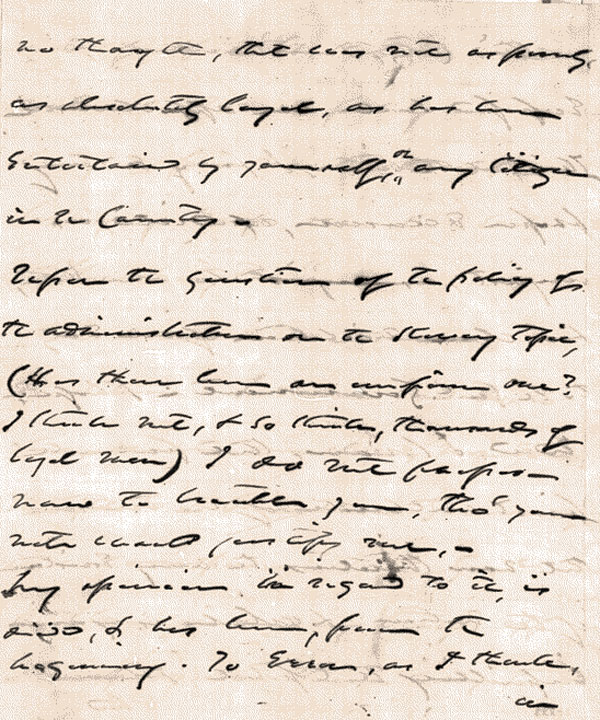 no thought, that was not as purely,
as absolutely loyal, as has been
entertained by yourself, or any Citizen
in the Country -
Upon the question of the policy of
the administration on the Slavery Topic,
(Has there been an uniform one?
I think not, & so think, thousands of
loyal men) I do not propose
now to trouble you, tho' your
note would justify me, -
My opinion in regard to it, is
& has been, from the
beginning. To Err, as I think,
in